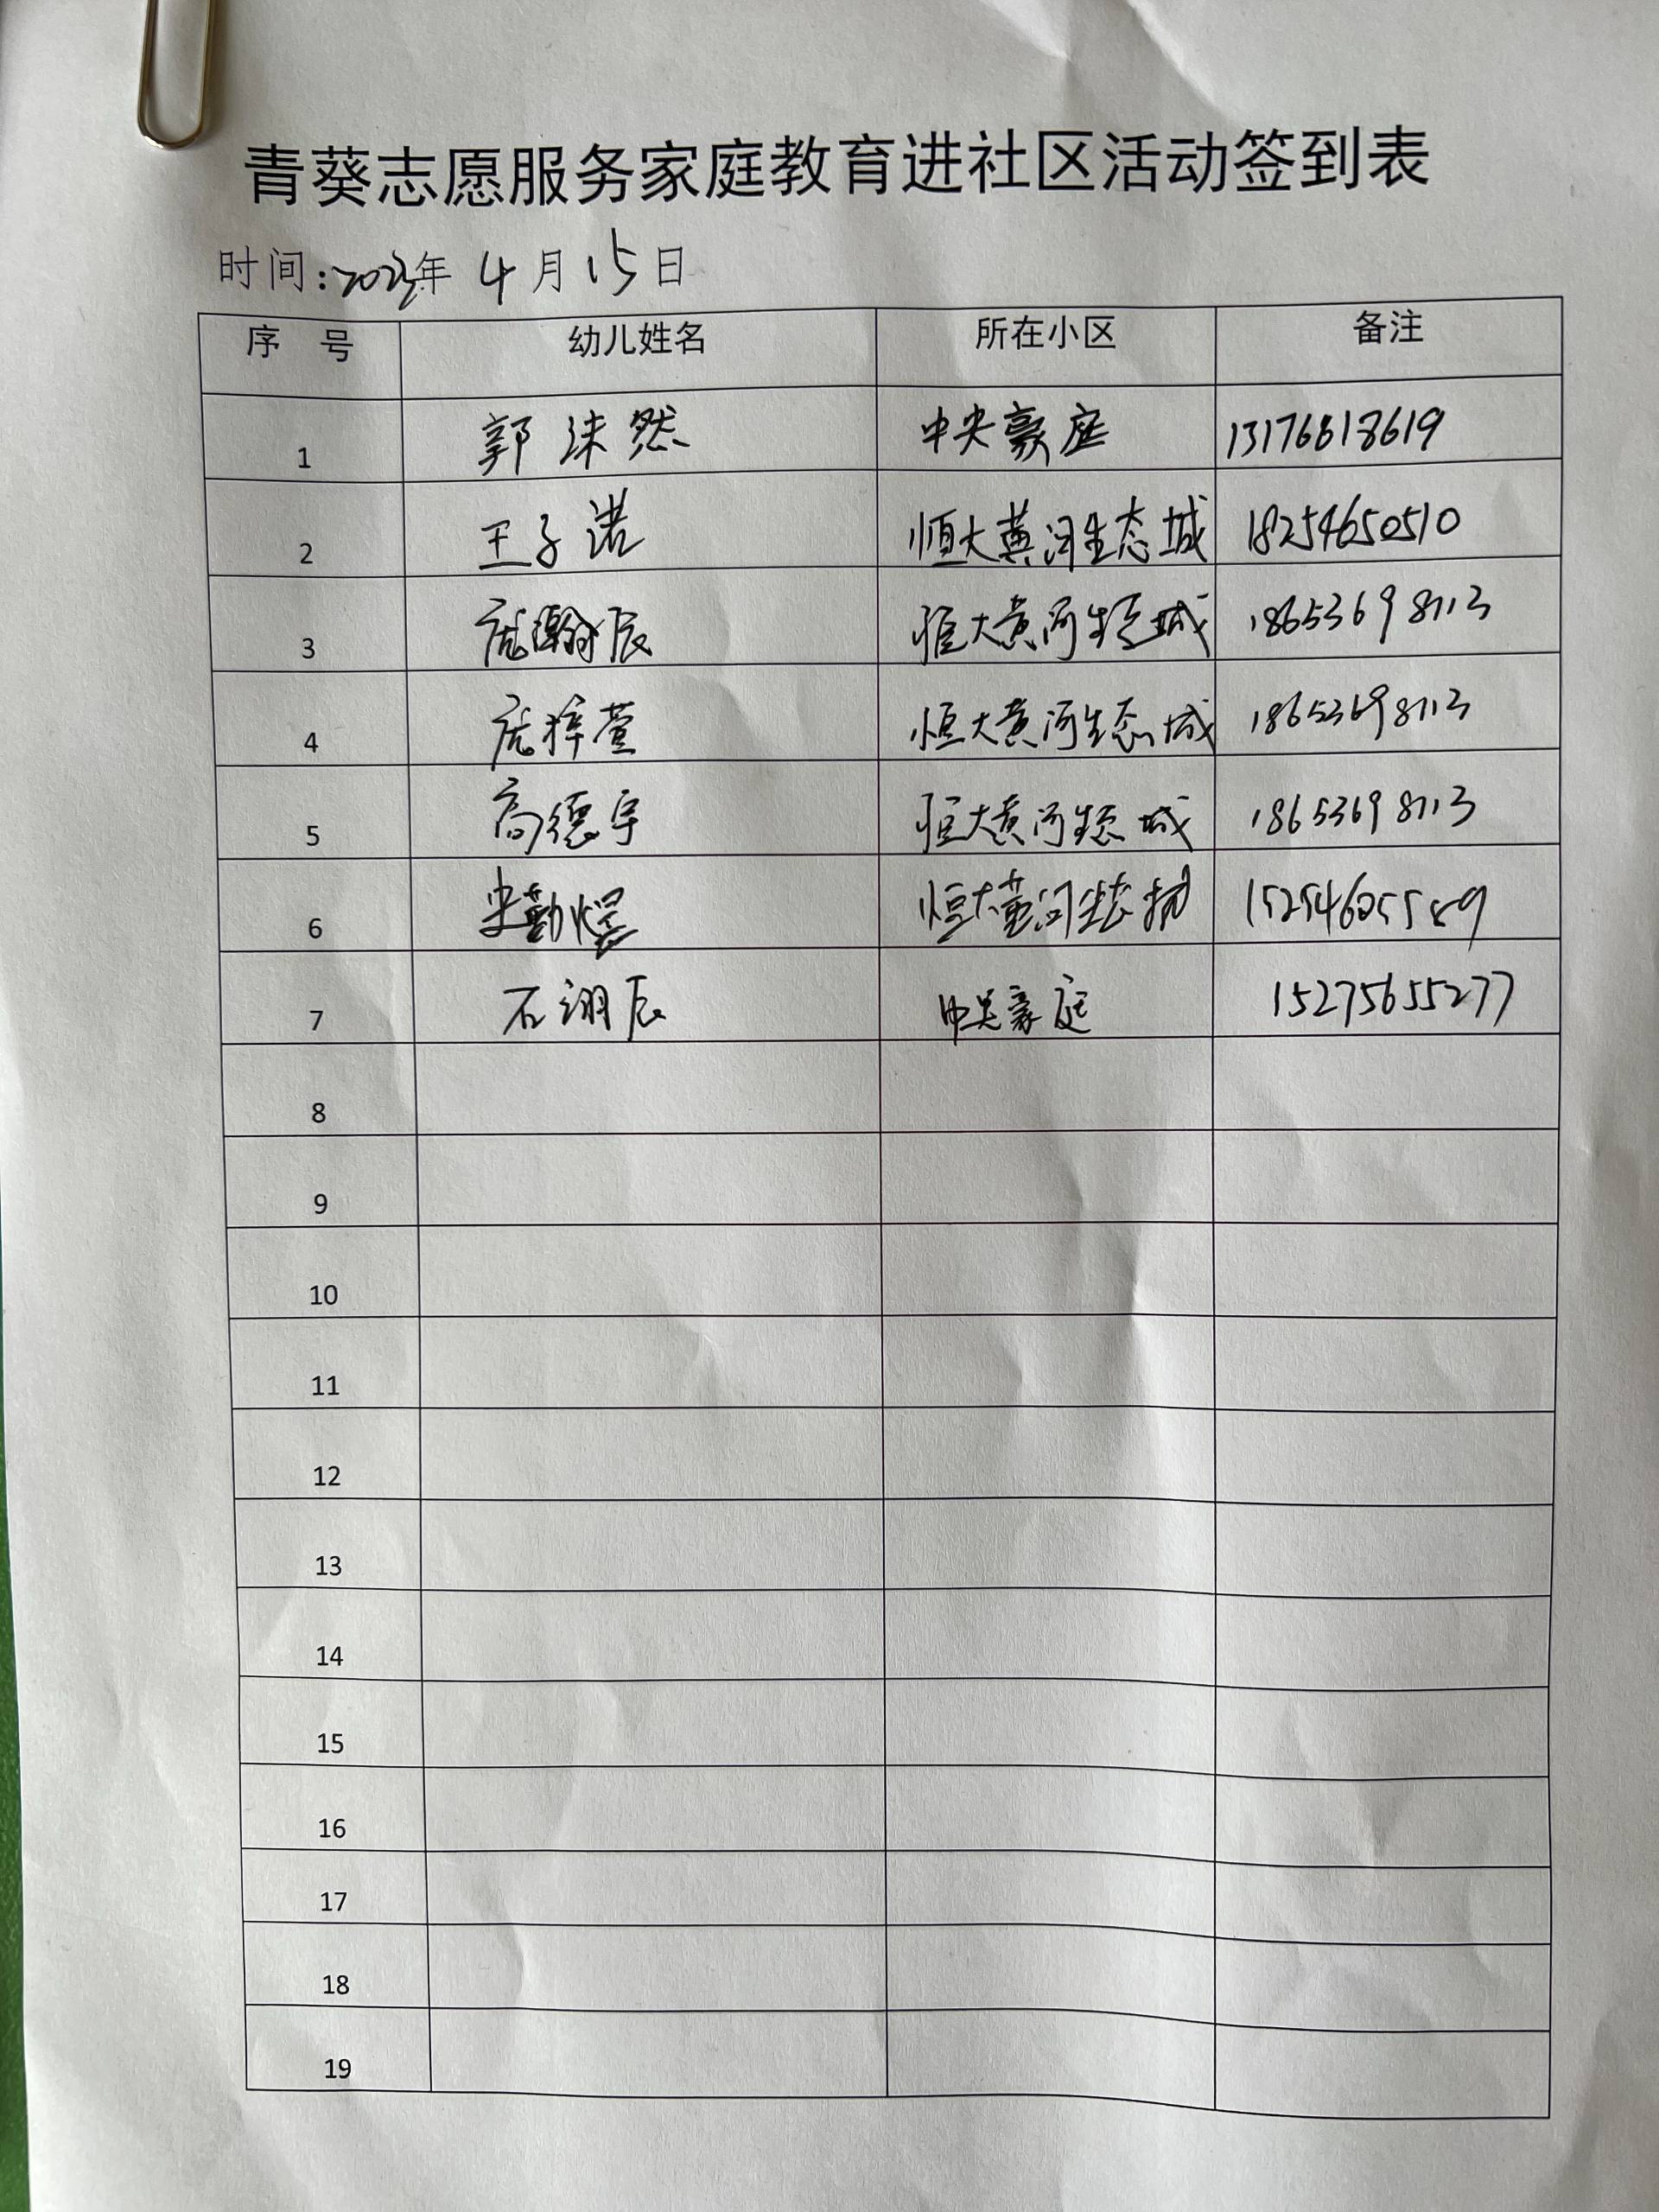 青葵志愿服务家庭教育进社区活动签到表
时间:2023年 4月 15日
序 号 幼儿姓名 所在小区 备注
1 郭沫然 中央豪庭 13176818619
2 王子诺 恒大黄河生态城 18254650510
3 庞瀚辰 恒大黄河生态城 18653698113
4 庞梓萱 恒大黄河生态城 18653698113
5 高德宇 恒大黄河生态城 18653698113
6 史勤煜 恒大黄河生态城 15254605589
7 石翊辰 中央豪庭 15275655277
8
9
10
11
12
13
14
15
16
17
18
19